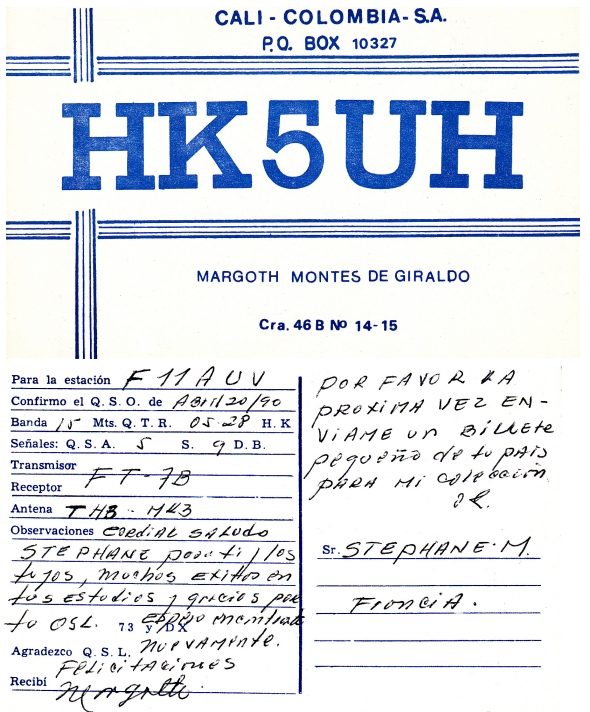 CALI - COLOMBIA - S.A.
P.O. BOX 10327
HK5UH
MARGOTH MONTES DE GIRALDO
Cra. 46 B No 14-15
Para la estación F11AUV
Confirmo el Q. S. O. de Abril/20/90
Banda 15 Mts. Q. T. R. 05-28 H. K
Señales: Q. S. A. 5 S. 9 D. B.
Transmisor
FT-7B
Receptor
Antena TH3-MK3
Observaciones Cordial SALUDO
STEPHANE para ti y los
tuyos, muchos exitos en
tus estudios y gracias por
tu QSL. 73 y DX espero encontrarte
Agradezco Q. S. L. nuevamente.
FELICITACIONES
Recibí Margoth.
POR FAVOR LA
PROXIMA VEZ EN-
VIAME un BILLETE
pequeño de tu pais
PARA Mi colección
Sr. STEPHANE. M.
Francia.